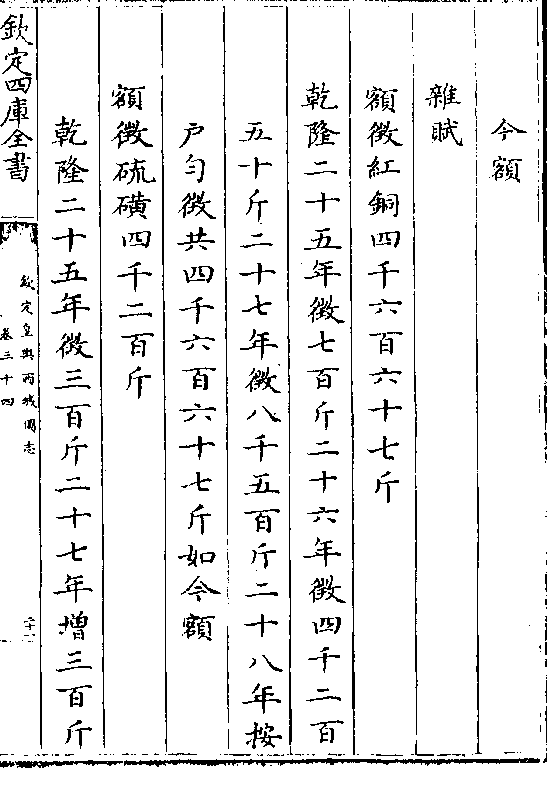 今額
雜賦
額徴紅銅四千六百六十七斤
乾隆二十五年徴七百斤二十六年徴四千二百
五十斤二十七年徴八千五百斤二十八年按
户勻徴共四千六百六十七斤如今額
額徴硫磺四千二百斤
乾隆二十五年徴三百斤二十七年增三百斤
欽定四庫全書
欽定皇輿西域圖志
卷三十四
二十一